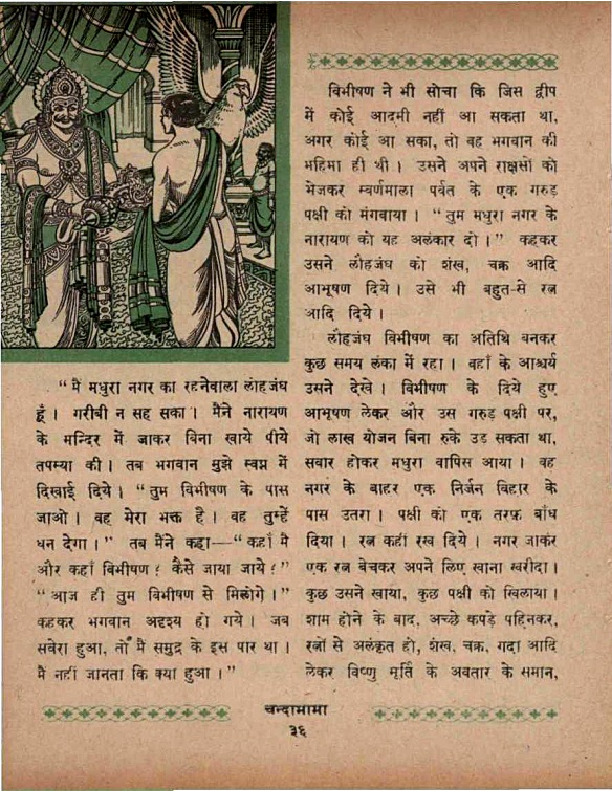 “मैं मधुरा नगर का रहनेवाला लोहजंघ
हूँ। गरीबी न सह सका। मैंने नारायण
के मन्दिर में जाकर बिना खाये पीये
तपस्या की। तब भगवान मुझे स्वप्न में
दिखाई दिये। “तुम विभीषण के पास
जाओ। वह मेरा भक्त है। वह तुम्हें
धन देगा।” तब मैंने कहा—“कहाँ मैं
और कहाँ विभीषण? कैसे जाया जाये?”
“आज ही तुम विभीषण से मिलोगे।”
कहकर भगवान अदृश्य हो गये। जब
सवेरा हुआ, तो मैं समुद्र के इस पार था।
मैं नहीं जानता कि क्या हुआ।”
विभीषण ने भी सोचा कि जिस द्वीप
में कोई आदमी नहीं आ सकता था,
अगर कोई आ सका, तो वह भगवान की
महिमा ही थी। उसने अपने राक्षसों को
भेजकर स्वर्णमाला पर्वत के एक गरुड़
पक्षी को मंगवाया। “तुम मधुरा नगर के
नारायण को यह अलंकार दो।” कहकर
उसने लौहजंघ को शंख, चक्र आदि
आभूषण दिये। उसे भी बहुत-से रत्न
आदि दिये।
लौहजंघ विभीषण का अतिथि बनकर
कुछ समय लंका में रहा। वहाँ के आश्चर्य
उसने देखे। विभीषण के दिये हुए
आभूषण लेकर और उस गरुड़ पक्षी पर,
जो लाख योजन बिना रुके उड़ सकता था,
सवार होकर मधुरा वापिस आया। वह
नगर के बाहर एक निर्जन विहार के
पास उतरा। पक्षी को एक तरफ़ बाँध
दिया। रत्न कहीं रख दिये। नगर जाकर
एक रत्न बेचकर अपने लिए खाना खरीदा।
कुछ उसने खाया, कुछ पक्षी को खिलाया।
शाम होने के बाद, अच्छे कपड़े पहिनकर,
रत्नों से अलंकृत हो, शंख, चक्र, गदा आदि
लेकर विष्णु मूर्ति के अवतार के समान,
चन्दामामा
३६